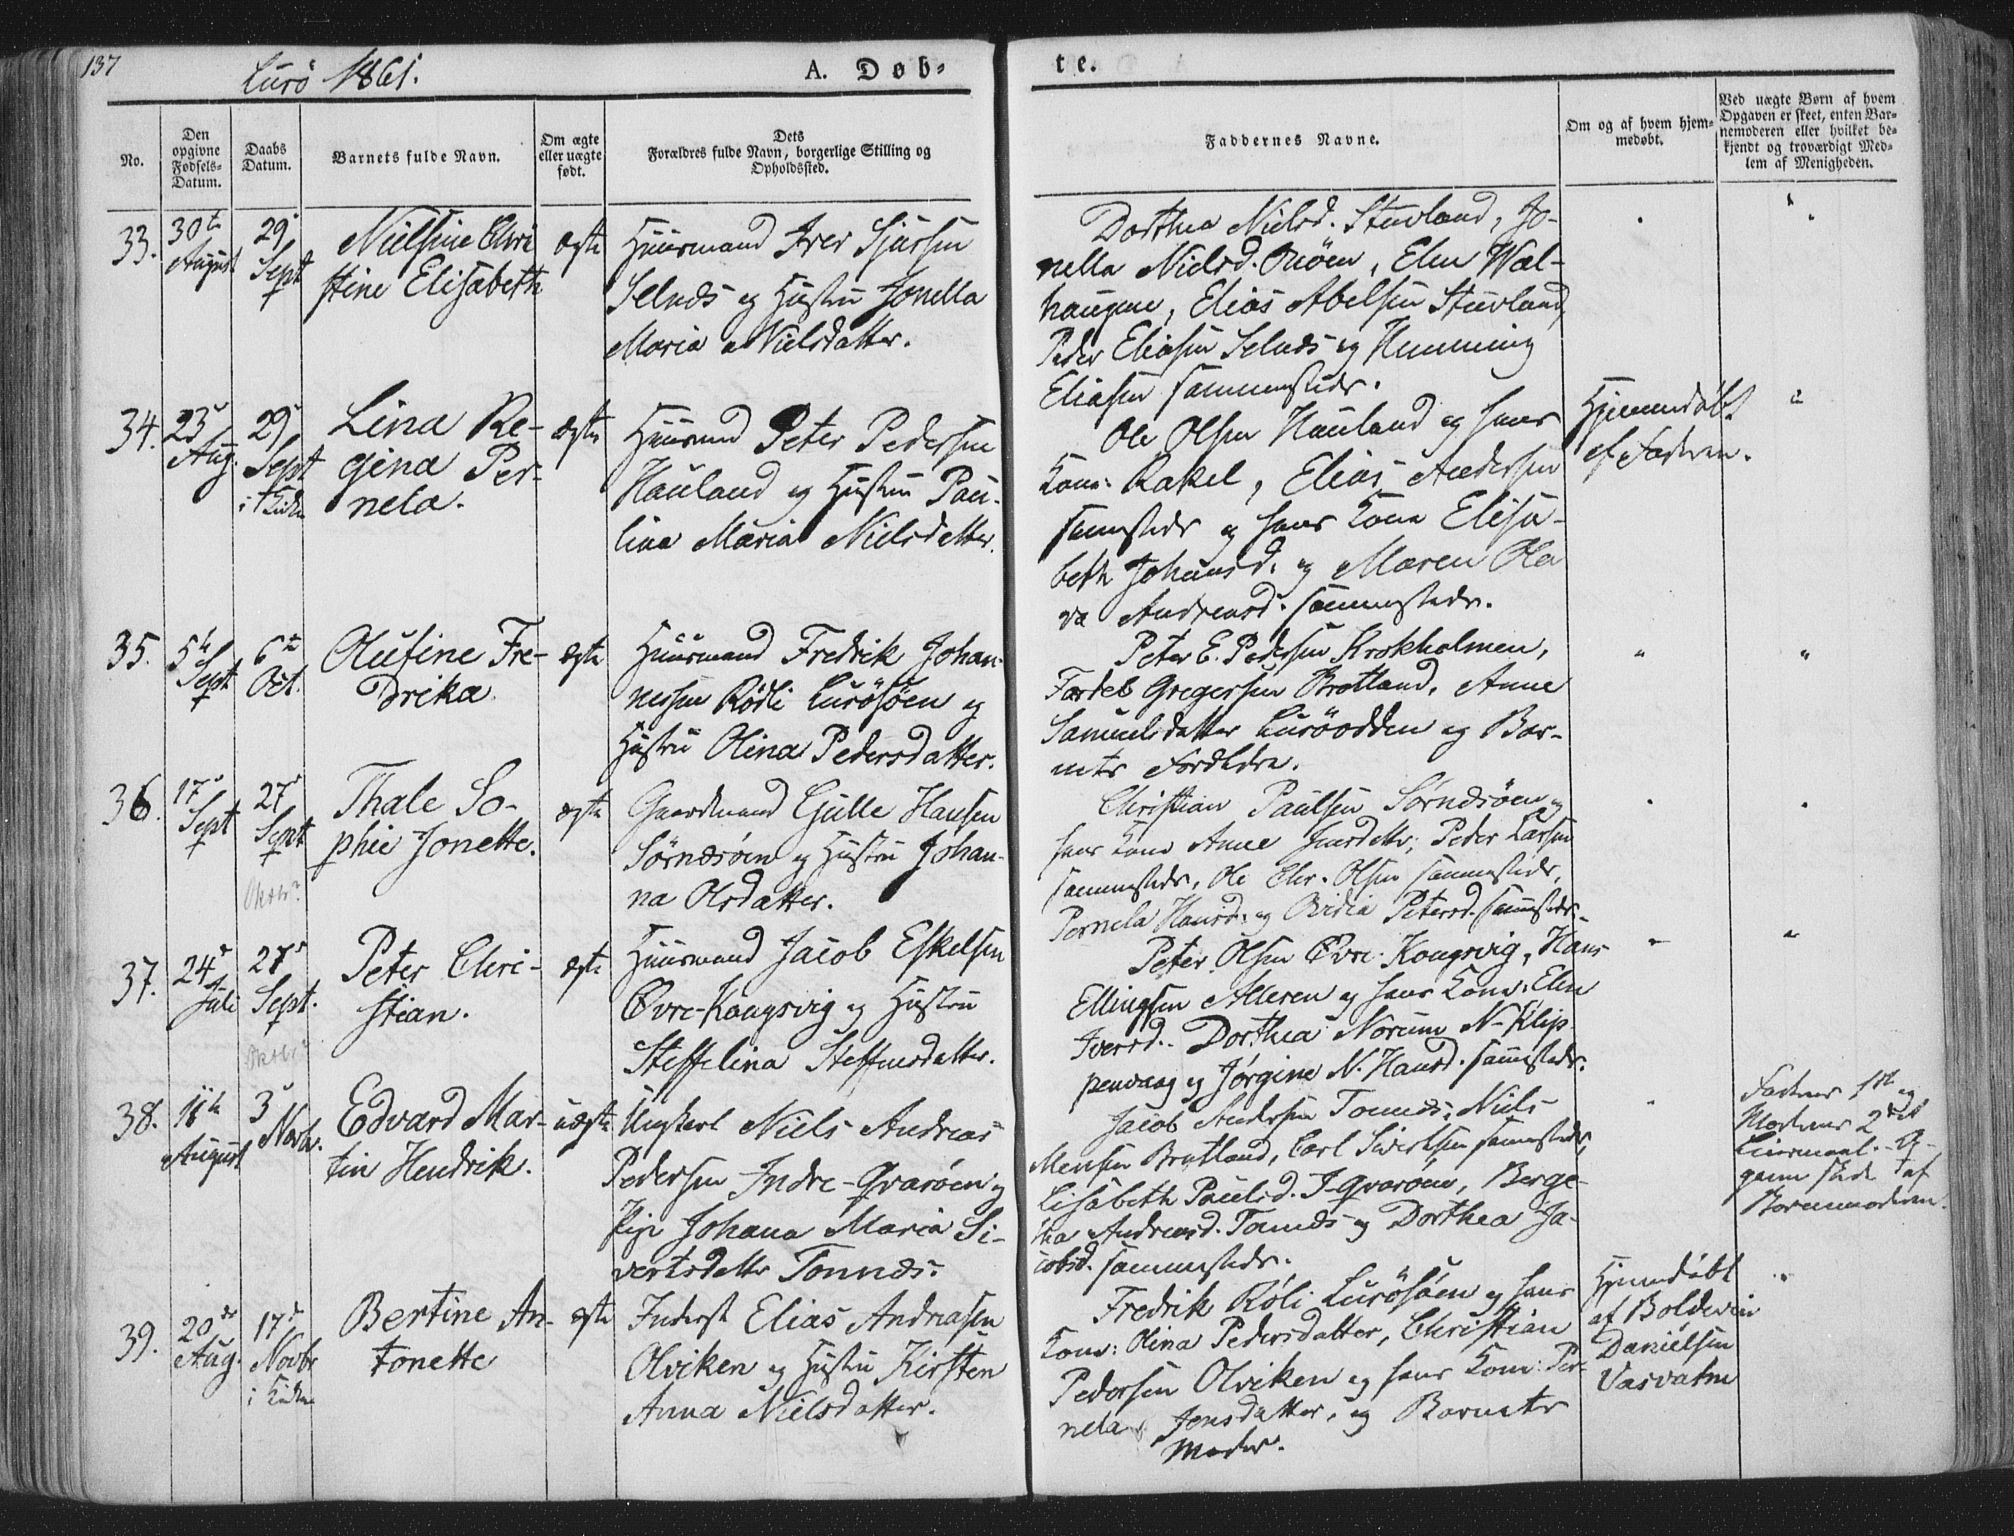 137
Lurö 1861.
A. Døb-
te.
No.
Den opgivne Fødsels-Datum.
Daabs Datum.
Barnets fulde Navn.
Om ægte eller uægte født.
Dets Forældres fulde Navn, borgerlige Stilling og Opholdssted.
Faddernes Navne.
Om og af hvem hjem-medøbt.
Ved uægte Børn af hvem Opgaven er skeet, enten Bar-nemoderen eller hvilket be-kjendt og troværdigt Med-lem af Menigheden.
33.
30te August
29 Sept
Nielsine Chri
stine Elisabeth
ægte
Huusmand Iver
Selnæs og Hustru Jonella
Maria Nielsdatter.
Dorthea Nielsd. Stuvland, Jo-
nella Nielsd. Elen Wal-
haugene, Elias Abelsen Stuvland,
Peder Eliasen Selnæs og Hemming
Eliasen sammesteds.
34.
23 Aug.
29 Sept
i Kirken
Lina Re-
gina Per-
nela.
ægte
Huusmand Peter Pedersen
Hauland og Hustru Pau-
lina Maria Nielsdatter.
Ole Olsen Hauland og hans
Kone Rakel, Elias Andersen
sammesteds og hans Kone Elisa-
beth Johansd. og Maren Ola
va Andreasd. sammesteds.
Hjemmedøbt
af Faderen.
35.
5te Sept
6te Oct.
Olufine Fre-
drika
ægte
Huusmand Fredrik Johan-
nessen Rödli Lurösöen og
Hustru Olina Pedersdatter.
Peter E. Pedersen Krokholmen,
Gregersen Bratland, Anne
Samuelsdatter Luröodden og Bar-
nets Forældre.
36.
17 Sept
27 Sept
Oktbr?
Thale So-
phie Jonette.
ægte
Gaardmand Gulle Hansen
Sörnæsöen og Hustru Johan-
na Olsdatter.
Christian Paulsen Sörnæsöen og
hans Kone Anne Peder Larsen
sammesteds, Ole Chr. Olsen sammesteds,
Pernela Hansd. og Ovidia Petersd. sammesteds.
37.
24 Juli
27 Sept.
Oktbr?
Peter Chri-
stian.
ægte
Huusmand Jacob Eskelsen
Övre-Kongsvig og Hustru
Steffelina Steffensdatter.
Peter Olsen Övre-Kongsvig, Hans
Ellingsen Alleren og hans Kone Elen
Iversd. Dorthea Norum N-Klip
penvaag og Jörgine N. Hansd. sammesteds.
38.
11te August
3 Novbr.
Edvard Mar-
tin Hendrik.
uægte
Ungkarl Niels Andreas
Pedersen Indre-Qvaröen og
Pige Johana Maria Si-
vertsdatter Tonnæs.
Jacob Andersen Tonnæs, Niels
Mensen Bratland, Carl Sivertsen sammesteds,
Elisabeth Paulsd. I-Qvaröen, Berge-
tha Andreasd. Tonnæs og Dorthea Ja-
cobsd. sammesteds.
Faderens 1ste og
Moderens 2det
Leiermaal. Op-
gaven skede af
Barnemoderen.
39.
20de Aug.
17 Novbr
i Kirken
Bertine An-
tonette
ægte
Inderst Elias Andreasen
Olviken og Hustru Kirsten
Anna Nielsdatter.
Fredrik Röli Lurösöen og hans
Kone Olina Pedersdatter, Christian
Pedersen Olviken og hans Kone Per-
nela Jensdatter, og Barnets
Moder.
Hjemmedøbt
af Boldevin
Danielsen